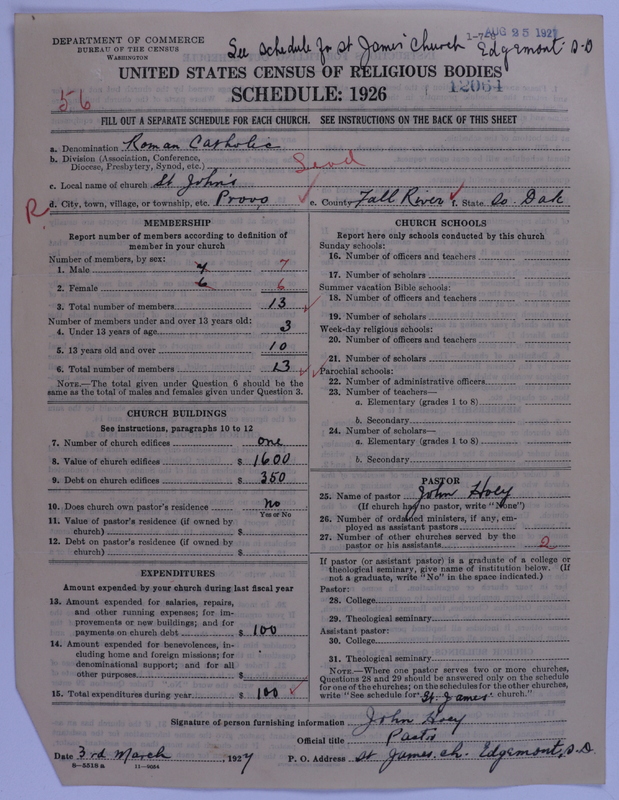 DEPARTMENT OF COMMERCE
BUREAU OF THE CENSUS
WASHINGTON
See schedule for St James' Church Edgemont S-D
1-748
AUG 25 1927
UNITED STATES CENSUS OF RELIGIOUS BODIES
SCHEDULE: 1926
12064
56
FILL OUT A SEPARATE SCHEDULE FOR EACH CHURCH. SEE INSTRUCTIONS ON THE BACK OF THIS SHEET
a. Denomination Roman Catholic
b. Division (Association, Conference,
Diocese, Presbytery, Synod, etc.)
c. Local name of church St John's
R
d. City, town, village, or township, etc. Provo
e. County Fall River f. State So. Dak
MEMBERSHIP
Report number of members according to definition of
member in your church
Number of members, by sex:
1. Male 7
2. Female 6 6
3. Total number of members 13
Number of members under and over 13 years old:
4. Under 13 years of age 3
5. 13 years old and over 10
6. Total number of members 13
NOTE.—The total given under Question 6 should be
same as the total of males and females given under Question 3.
CHURCH BUILDINGS
See instructions, paragraphs 10 to 12
7. Number of church edifices one
8. Value of church edifices $ 1600
9. Debt on church edifices $ 350
10. Does church own pastor's residence no
Yes or No
11. Value of pastor's residence (if owned by
church) $
12. Debt on pastor's residence (if owned by
church) $
EXPENDITURES
Amount expended by your church during last fiscal year
13. Amount expended for salaries, repairs,
and other running expenses; for im-
provements or new buildings; and for
payments on church debt $ 100
14. Amount expended for benevolences, in-
cluding home and foreign missions; for
denominational support; and for all
other purposes $
15. Total expenditures during year $ 100
CHURCH SCHOOLS
Report here only schools conducted by this church
Sunday schools:
16. Number of officers and teachers
17. Number of scholars
Summer vacation Bible schools:
18. Number of officers and teachers
19. Number of scholars
Week-day religious schools:
20. Number of officers and teachers
21. Number of scholars
Parochial schools:
22. Number of administrative officers
23. Number of teachers—
a. Elementary (grades 1 to 8)
b. Secondary
24. Number of scholars—
a. Elementary (grades 1 to 8)
b. Secondary
PASTOR
25. Name of pastor John Hoey
(If church has no pastor, write "None")
26. Number of ordained ministers, if any, em-
ployed as assistant pastors
27. Number of other churches served by the
pastor or his assistants 2
If pastor (or assistant pastor) is a graduate of a college or
theological seminary, give name of institution below. (If
not a graduate, write "No" in the space indicated.)
Pastor:
28. College
29. Theological seminary
Assistant pastor:
30. College
31. Theological seminary
NOTE.—Where one pastor serves two or more churches,
Questions 28 and 29 should be answered only on the schedule
for one of the churches; on the schedules for the other churches,
write "See schedule for St. James church."
Signature of person furnishing information John Hoey
Official title Pastor
Date 3rd March, 1927
P. O. Address St James. Ch. Edgemont, S-D.
8-5518 a
11-9084